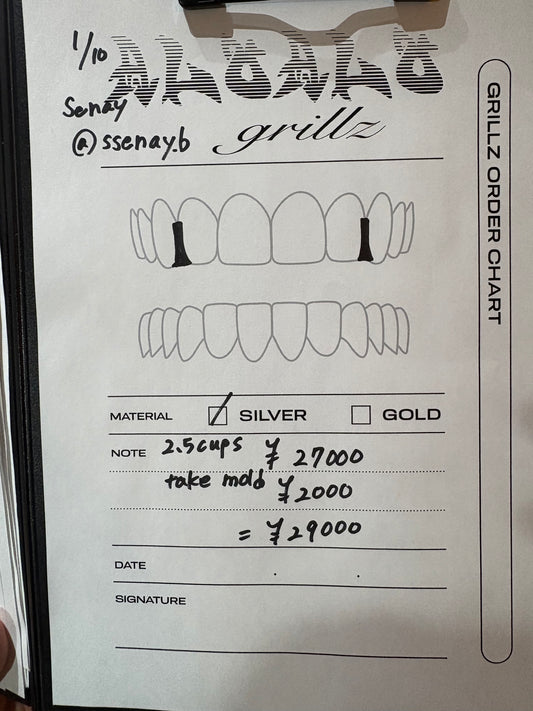 1/10
Senay
@ssenay.b
grillz
GRILLZ ORDER CHART
MATERIAL SILVER GOLD
NOTE 2.5cups ¥ 27000
take mold ¥2000
= ¥29000
DATE
SIGNATURE